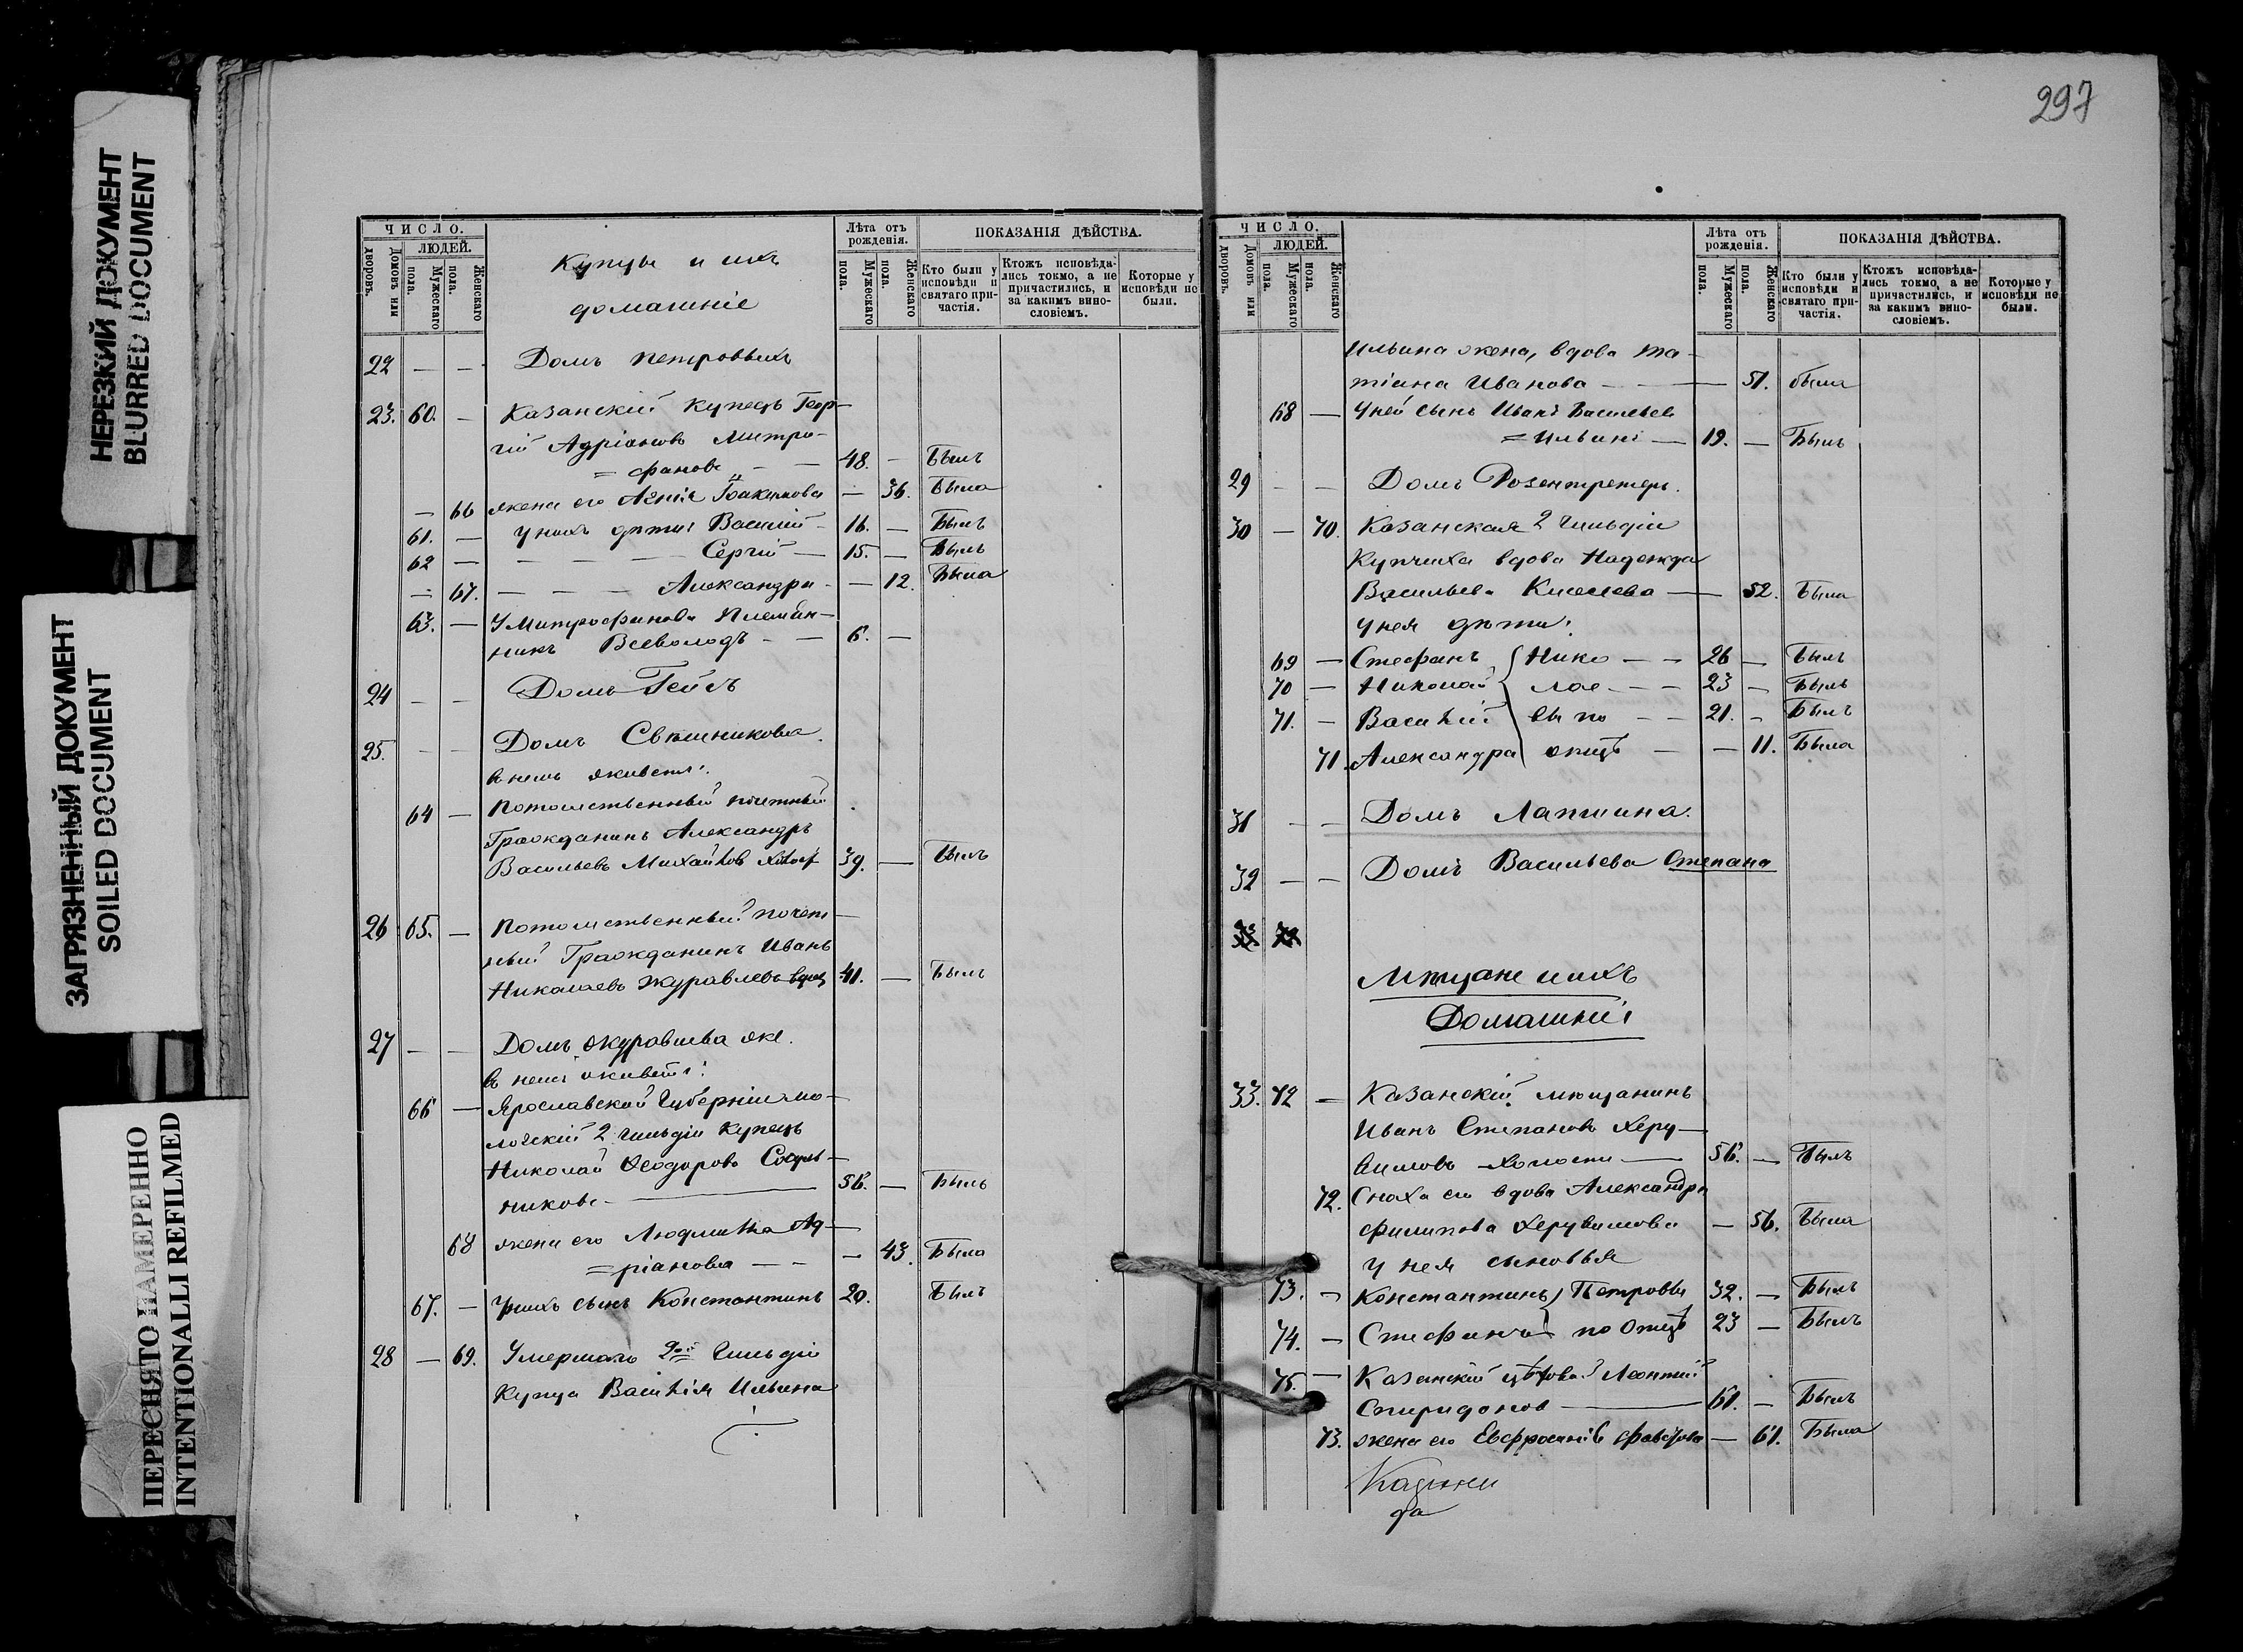 НЕРЕЗКИЙ ДОКУМЕНТ
BLURRED DOCUMENT
ЗАГРЯЗНЕННЫЙ ДОКУМЕНТ
SOILED DOCUMENT
ПЕРЕСНЯТО НАМЕРЕННО
INTENTIONALLI REFILMED
ЧИСЛО.
Домовъ или дворовъ.
ЛЮДЕЙ.
Мужескаго пола.
Женскаго пола.
Купцы и ихъ
домашніе
Лѣта отъ рожденія.
Мужескаго пола.
Женскаго пола.
ПОКАЗАНІЯ ДѢЙСТВА.
Кто были у исповѣди и святаго причастія.
Ктожъ исповѣдались токмо, а не причастились, и за какимъ винословіемъ.
Которые у исповѣди не были.
22 — — Домъ Петровыхъ
23. 60. — Казанскій купецъ Геор-
гій Адріановъ Митро-
= фановъ — — 48. — Былъ
— 66 жена его Агнія Іоакимова — 36. Была
61. — у нихъ дѣти: Василій — 16. — Былъ
62 — — — — Сергій — 15. — Былъ
— 67. — — — Александра — — 12. Была
63. — У Митрофанова Племян-
никъ Всеволодъ — — 6. —
24 — — Домъ Гейсъ
25. — — Домъ Свѣшникова.
въ немъ живетъ:
64 — Потомственный почетный
Гражданинъ Александръ
Васильевъ Михайловъ холост 39. — Былъ
26 65. — Потомственный почет-
ный Гражданинъ Иванъ
Николаевъ Журавлевъ вдовец 41. — Былъ
27 — — Домъ Журавлева же.
въ немъ живетъ:
66 — Ярославской Губерніи Мо-
логскій 2 гильдіи купецъ
Николай Ѳеодоровъ
никовъ — 56. — Былъ
68 жена его Людмила Ад-
= ріановна — — — 43. Была
67. — У нихъ сынъ Константинъ 20. Былъ
28 — 69. Умершаго 2ой Гильдіи
Купца Василія Ильина
297
ЧИСЛО.
Домовъ или дворовъ.
ЛЮДЕЙ.
Мужескаго пола.
Женскаго пола.
Лѣта отъ рожденія.
Мужескаго пола.
Женскаго пола.
ПОКАЗАНІЯ ДѢЙСТВА.
Кто были у исповѣди и святаго причастія.
Ктожъ исповѣдались токмо, а не причастились, и за какимъ винословіемъ.
Которые у исповѣди не были.
Ильина жена, вдова Та-
тіана Иванова — — 51. была
68 — У ней сынъ Иванъ Васильевъ
= Ильинъ — 19. — Былъ
29 — — Домъ Розентретеръ.
30 — 70. Казанская 2 Гильдіи
Купчиха вдова Надежда
Васильева Киселева — 52. Была
У нея дѣти:
69 — Стефанъ Нико — — 26 — Былъ
70 — Николай лае — — 23 — Былъ
71. — Василій вы по — — 21. — Былъ
71 Александра отцѣ — — 11. Была
31 — — Домъ Лапшина.
32 — — Домъ Васильева Степана
Мѣщане и ихъ
Домашніе
33. 72 — Казанскій мѣщанинъ
Иванъ Степановъ Херу-
вимовъ холостъ — 56. — Былъ
72. Сноха его вдова Александра
Филипова Херувимова — 56. Была
у нея сыновья
73. — Константинъ Петровы 32. — Былъ
74. — Стефанъ по отцѣ 23 — Былъ
75. — Казанскій цѣховой Леонтій
Спиридоновъ — 61. — Былъ
73. жена его Евфросинія — 61. Была